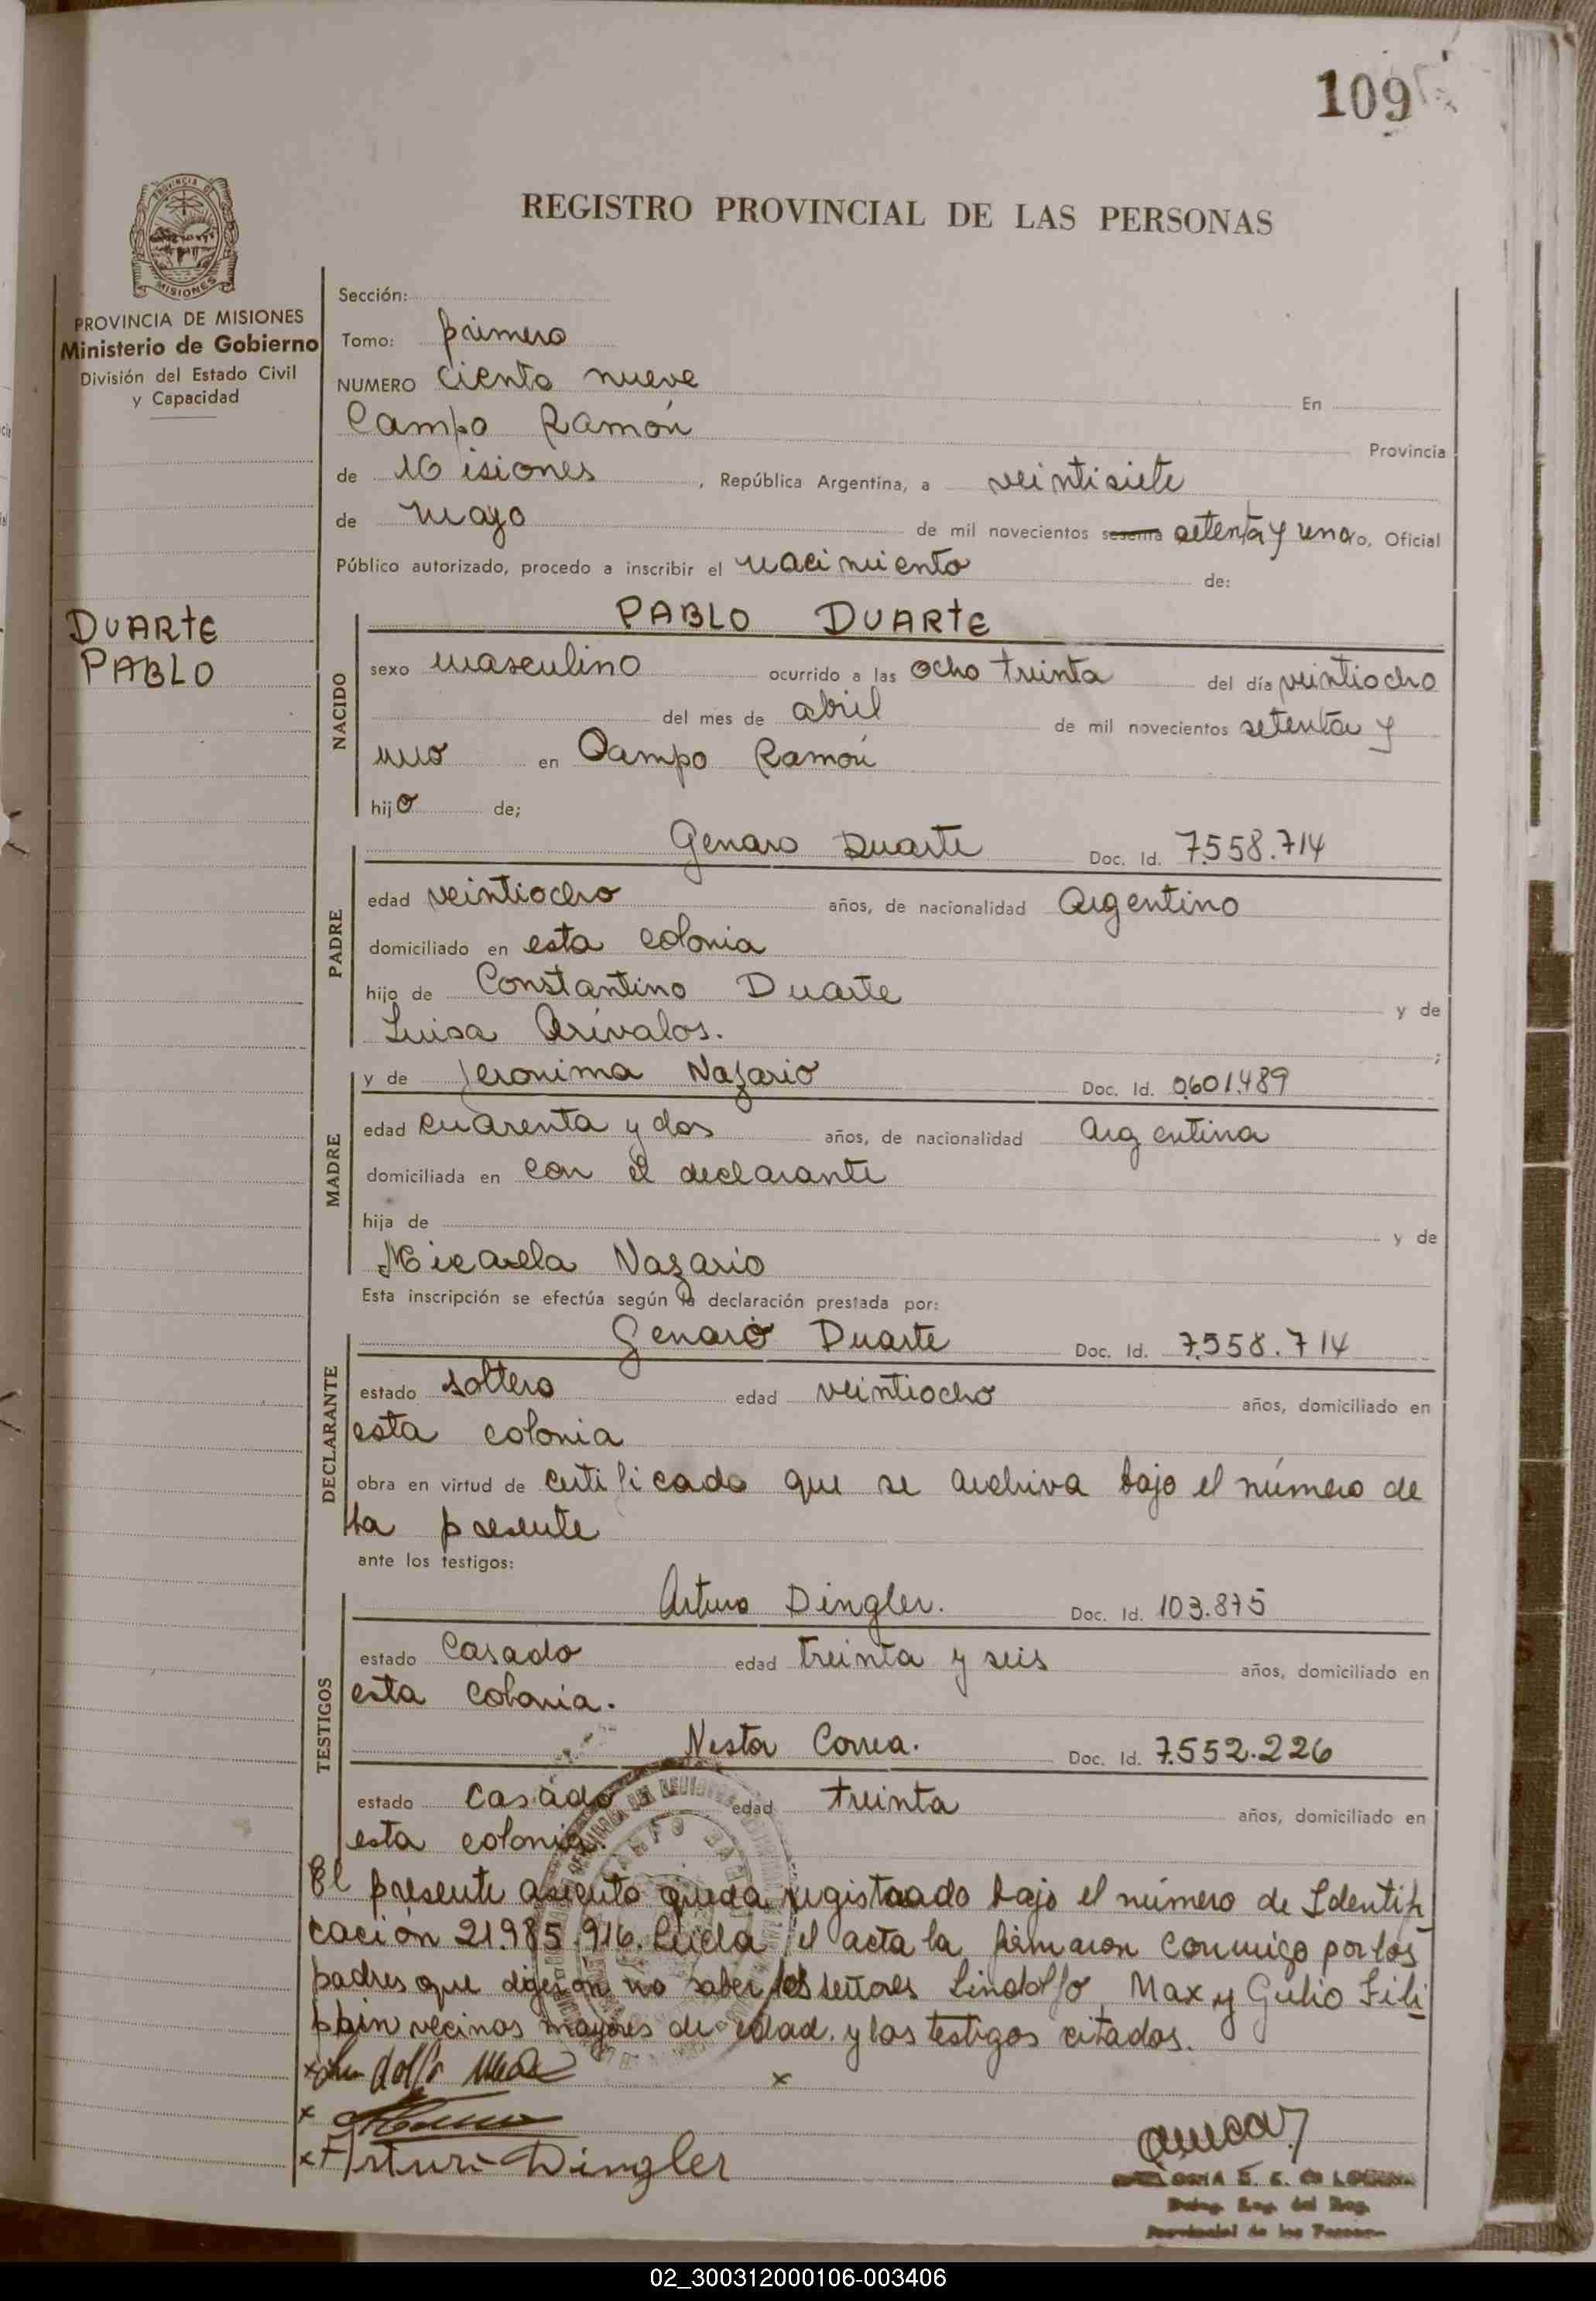 109
PROVINCIA DE
MISIONES
REGISTRO PROVINCIAL DE LAS PERSONAS
PROVINCIA DE MISIONES
Ministerio de Gobierno
División del Estado Civil
y Capacidad
Sección:
Tomo: primero
NUMERO ciento nueve En
Campo Ramón Provincia
de Misiones , República Argentina, a veintisiete
de mayo de mil novecientos sesenta setenta y uno, Oficial
Público autorizado, procedo a inscribir el nacimiento de:
DUARTE
PABLO
NACIDO
PABLO DUARTE
sexo masculino ocurrido a las ocho treinta del día veintiocho
del mes de abril de mil novecientos setenta y
uno en Campo Ramón
hijo de;
PADRE
Genaro Duarte Doc. Id. 7.558.714
edad veintiocho años, de nacionalidad Argentino
domiciliado en esta colonia
hijo de Constantino Duarte y de
Luisa Arívalos. ;
MADRE
y de Jeronima Nazario Doc. Id. 0.601.489
edad cuarenta y dos años, de nacionalidad Argentina
domiciliada en con el declarante
hija de y de
Micaela Nazario
Esta inscripción se efectúa según la declaración prestada por:
DECLARANTE
Genaro Duarte Doc. Id. 7.558.714
estado soltero edad veintiocho años, domiciliado en
esta colonia
obra en virtud de certificado que se archiva bajo el número de
la presente
ante los testigos:
TESTIGOS
Arturo Dingler. Doc. Id. 103.875
estado casado edad treinta y seis años, domiciliado en
esta colonia.
Nestor Correa. Doc. Id. 7.552.226
estado casado edad treinta años, domiciliado en
esta colonia.
El presente asiento queda registrado bajo el número de Identifi
cación 21.985.916. Leída el acta la firmaron conmigo por los
padres que dijeron no saber los señores Lindolfo Max y Gulio Fili
ppin vecinos mayores de edad. y los testigos citados.
x Lindolfo Max x
x
x Arturo Dingler
02_300312000106-003406